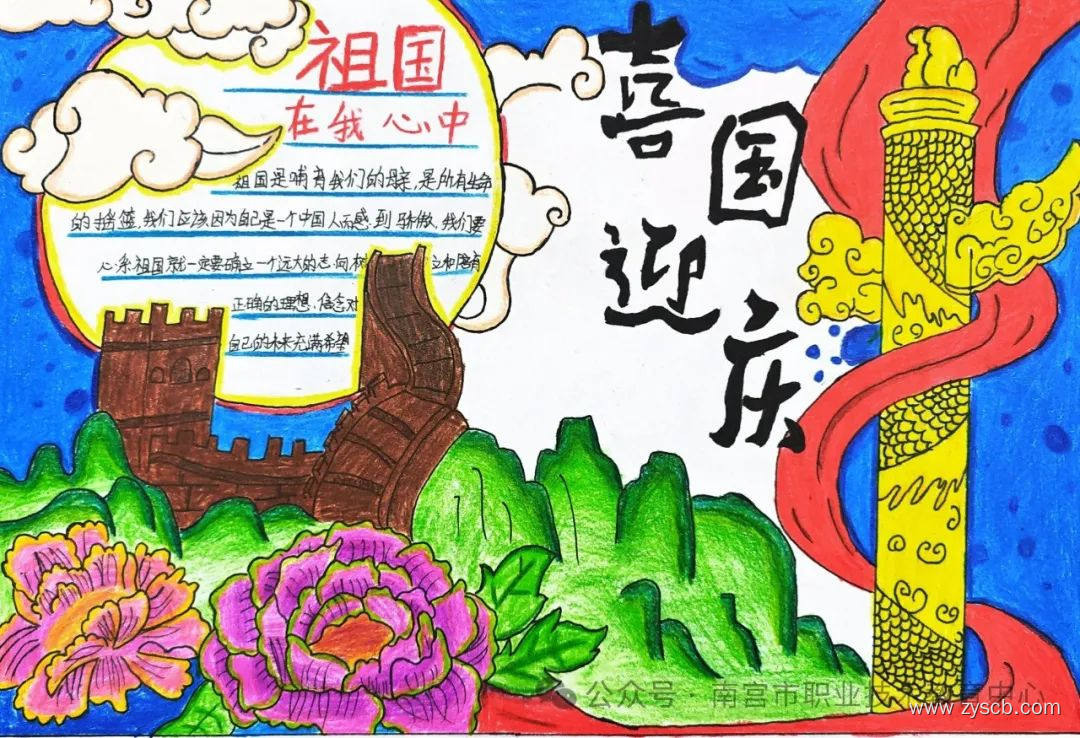 祖国
在我心中
祖国是哺育我们的母亲,是所有生命
的摇篮,我们应该因为自己是一个中国人而感到骄傲,我们要
心系祖国就一定要确立一个远大的志向树立和培育
正确的理想、信念对
自己的未来充满希望
喜迎国庆
公众号·南宫市职业技术教育中心
www.zyscb.com